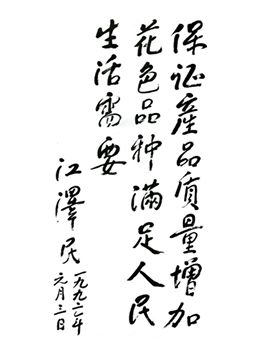 保证產品质量增加
花色品种满足人民
生活需要
江澤民
一九九二年
元月三日